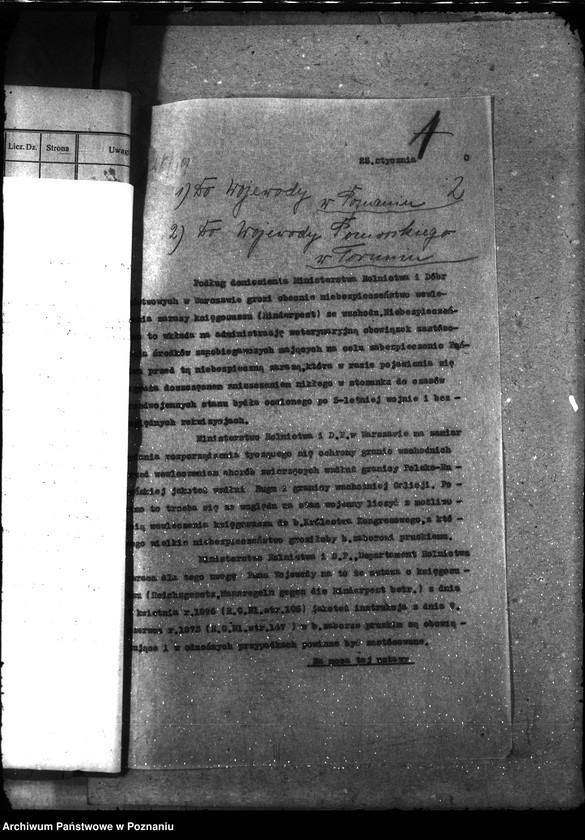 Licz. Dz. Strona Uwagi
28.stycznia 0
1
2
1) Do Wojewody w Poznaniu
2) Do Wojewody Pomorskiego
w Toruniu
Podług doniesienia Ministerstwa Rolnictwa i Dóbr
stwowych w Warszawie grozi obecnie niebezpieczeństwo wewle-
nia zarazy księgosuszu (Rinderpest) ze wschodu.Niebezpieczeń-
to wkłada na administrację weterynaryjną obowiązek zastóso-
nia środków zapobiegawczych mających na celu zabezpieczenie Pań-
wa przed tą niebezpieczną zarazą,która w razie pojawienia się
doszczętnem zniszczeniem nikłego w stosunku do czasów
zedwojennych stanu bydła ocalonego po 5-letniej wojnie i bez -
ględnych rekwizycjach.
Ministerstwo Rolnictwa i D.P.w Warszawie ma zamiar
dania rozporządzenia tyczącego się ochrony granic wschodnich
zed wewleczeniem chorób zwierzęcych wzdłuż granicy Polsko-Ru -
ńskiej jakoteż wzdłuż Bugu i granicy wschodniej Galicji. Po-
mo to trzeba się ze względu na stan wojenny liczyć z możliwo -
cią wewleczenia księgosuszu do b.Królestwa Kongresowego,z któ -
ego wielkie niebezpieczeństwo groziłoby b.zaborowi pruskiemu.
Ministerstwo Rolnictwa i D.P.,Departament Rolnictwa
wraca dla tego uwagę Pana Wojewody na to że ustawa o księgosu -
zu (Reichsgesetz,Massregeln gegen die Rinderpest betr.) z dnia
kwietnia r.1896 (R.G.Bl.str.105) jakoteż instrukcja z dnia 9.
czerwca r.1873 (R.G.Bl.str.147 ) w b.zaborze pruskim są obowią -
zujące i w odnośnych przypadkach powinne być zastósowane.
Na mocy tej ustawy